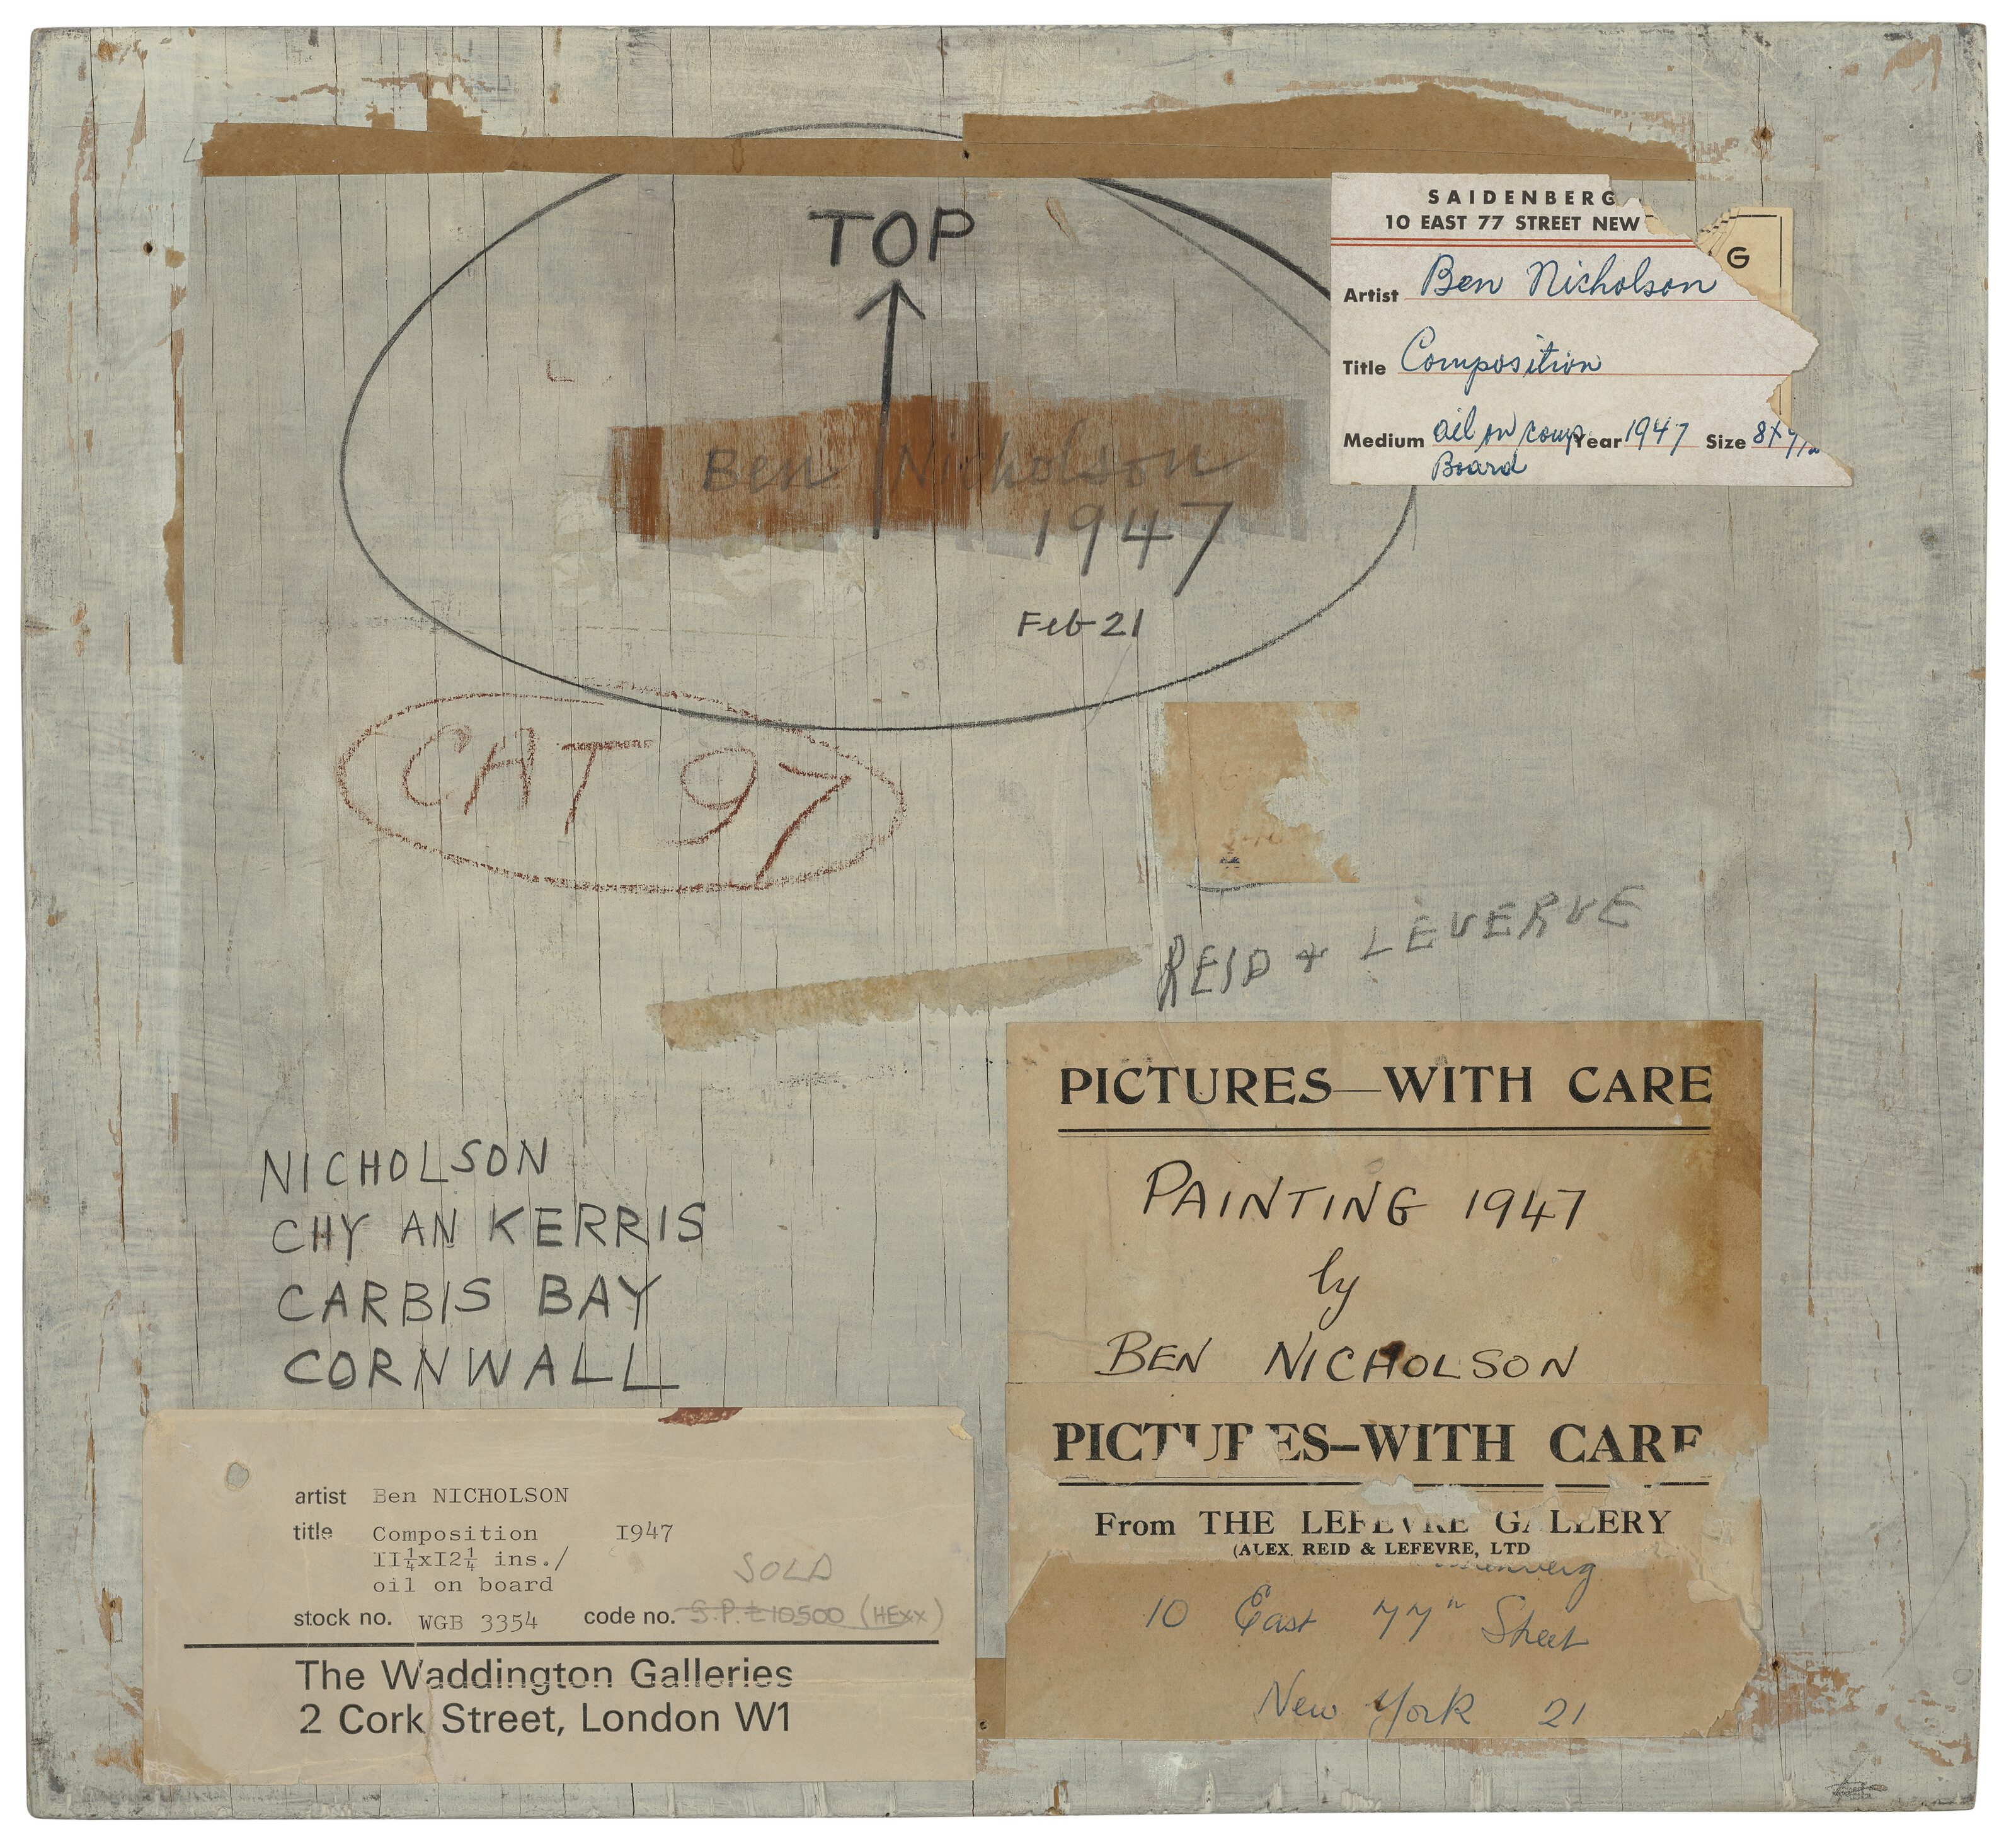 TOP
Ben Nicholson
1947
Feb 21
SAIDENBERG
10 EAST 77 STREET NEW
G
Artist Ben Nicholson
Title Composition
Medium oil on comp Year 1947 Size 8x9½
Board
CAT 97
REID + LEVERVE
NICHOLSON
CHY AN KERRIS
CARBIS BAY
CORNWALL
PICTURES—WITH CARE
PAINTING 1947
by
BEN NICHOLSON
PICTURES–WITH CARE
From THE LEFEVRE GALLERY
(ALEX. REID & LEFEVRE, LTD
10 East 77th Street
New York 21
artist Ben NICHOLSON
title Composition 1947
II¼xI2¼ ins./
oil on board
SOLD
stock no. WGB 3354 code no. S.P. £10500 (HEXX)
The Waddington Galleries
2 Cork Street, London W1